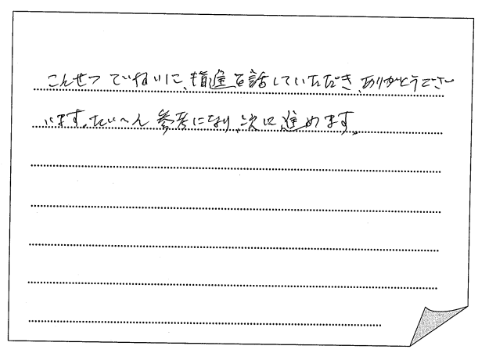 こんせつ ていねいに、指進を話していただき、ありがとうござい
います。たいへん 参考になり、次に進めます。